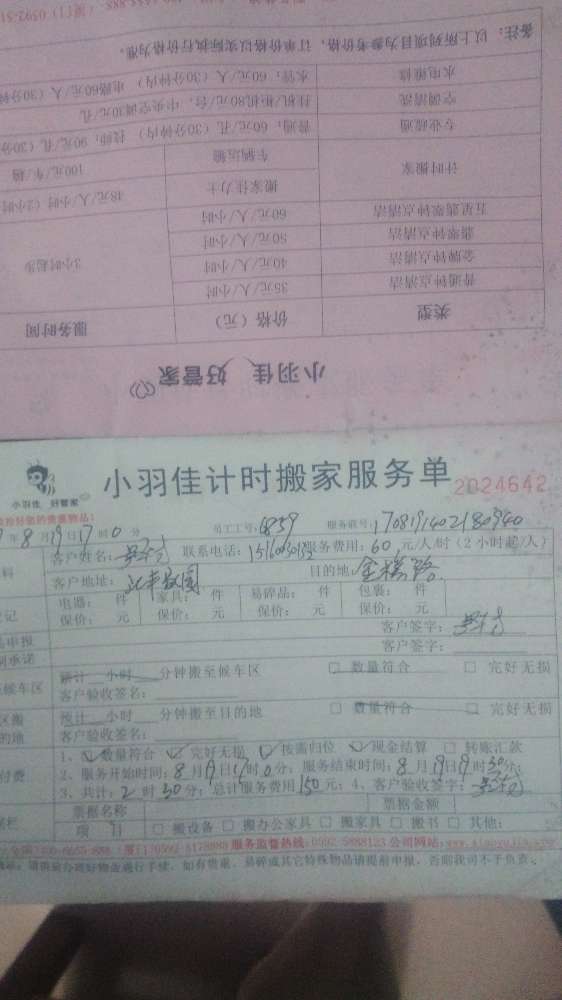 备注：以上所列项目为参考价格，订单价格以实际执行价格为准。
水电维修 水管：60元/人（30分钟内） 电路60元/人（30分钟
空调清洗 挂机/柜机80元/台，中央空调30元/孔
专业疏通 普通：60元/孔（30分钟内） 技师：90元/孔（30分
计时搬家 车辆运输 100元/车/趟
搬家佳力士 48元/人/小时（2小时
五星翡翠钟点清洁 60元/人/小时
翡翠钟点清洁 50元/人/小时
金牌钟点清洁 40元/人/小时 3小时起步
普通钟点清洁 35元/人/小时
类型 价格（元） 服务时间
小羽佳 好管家
小羽佳 好管家
小羽佳计时搬家服务单 2024642
好您的贵重物品：
年8月19日17时0分 员工工号： 服务款号：
客户姓名： 联系电话： 服务费用：60元/人/时（2小时起/人）
客户地址： 目的地：金榜路
电器： 件 家具： 件 易碎品： 件 包裹： 件
保价： 元 保价： 元 保价： 元 保价： 元
客户签字：
客户签字：
预计 小时 分钟搬至候车区 □ 数量符合 □ 完好无损
候车区 客户验收签名：
预计 小时 分钟搬至目的地 □ 数量符合 □ 完好无损
的地 客户验收签名：
1、☑数量符合 ☑完好无损 ☑按需归位 ☑现金结算 □ 转账汇款
付费 2、服务开始时间：8月19日17时0分；服务结束时间：8月19日19时30分；
3、共计：2时30分；总计服务费用150元；4、客户验收签字：
票据名称 票据金额
项 目 □ 搬设备 □ 搬办公家具 □ 搬家具 □ 搬书 □ 其他：
服务监督热线：0592-5888123 公司网站：
如有贵重、易碎或其它特殊物品请提前申报，否则我司不予负责。